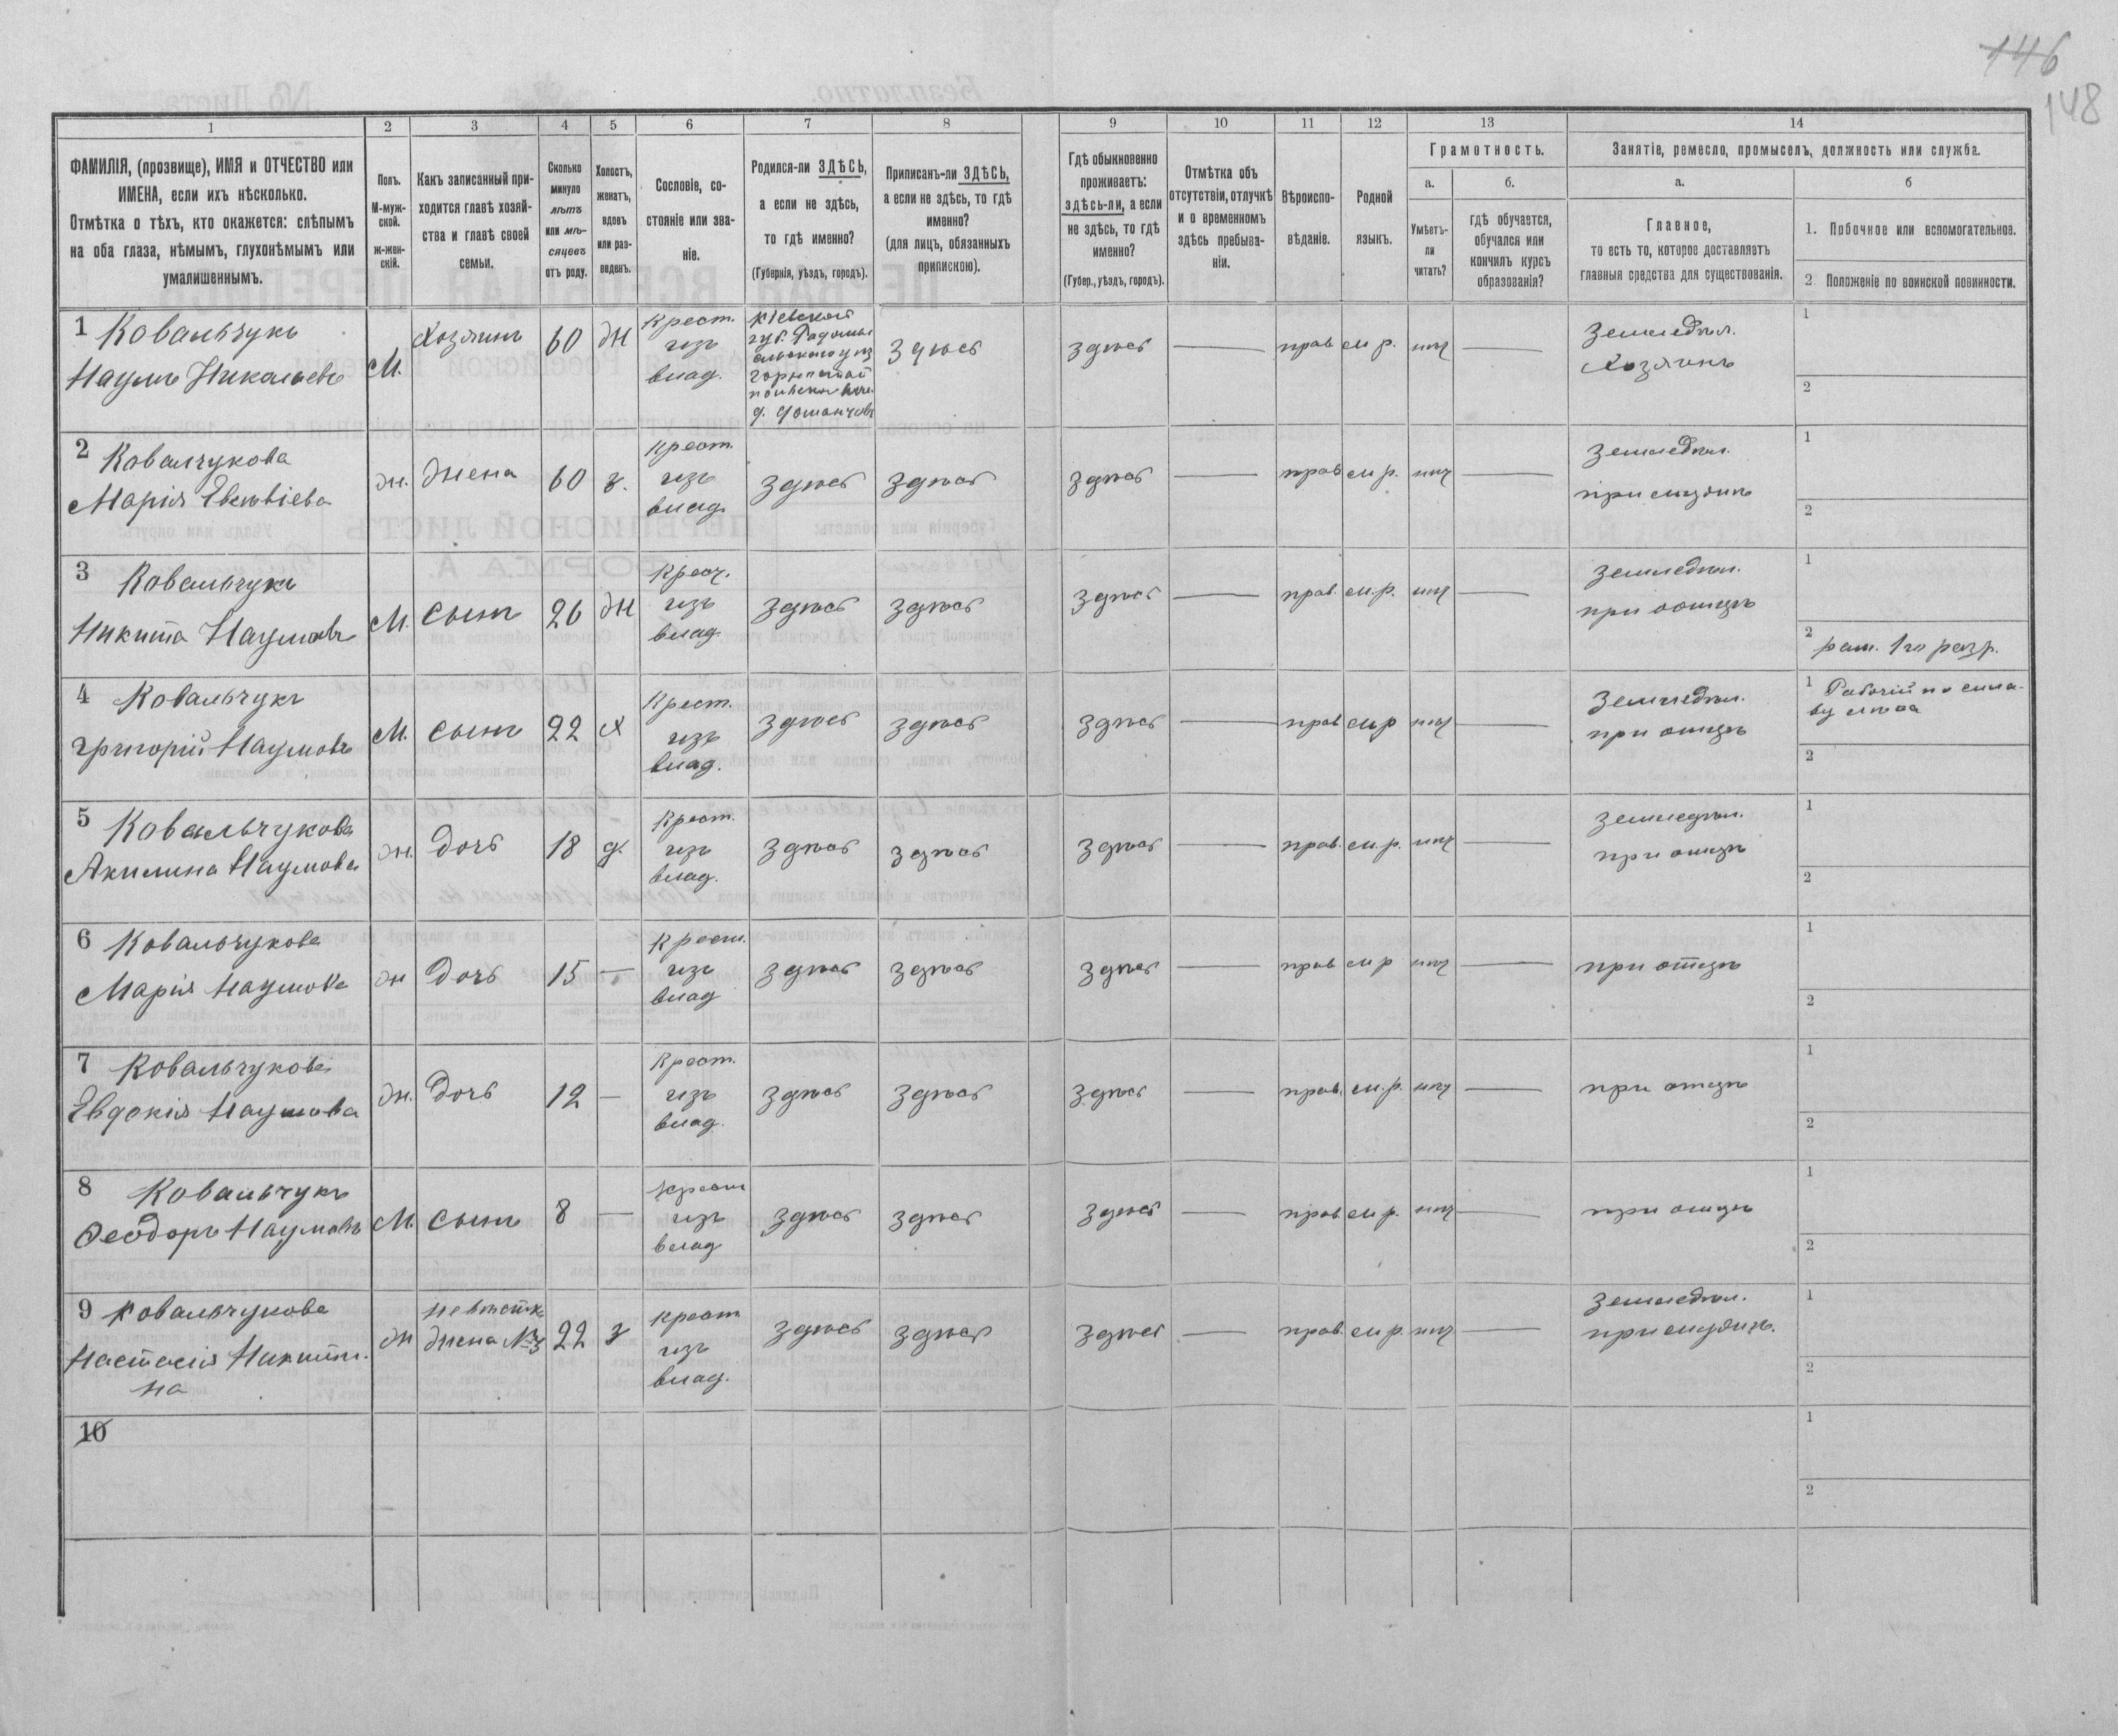 146
148
1 2 3 4 5 6 7 8 9 10 11 12 13 14
ФАМИЛІЯ, (прозвище), ИМЯ и ОТЧЕСТВО или ИМЕНА, если ихъ нѣсколько.
Отмѣтка о тѣхъ, кто окажется: слѣпымъ на оба глаза, нѣмымъ, глухонѣмымъ или умалишеннымъ.
Полъ.
М-мужской.
ж-женскій.
Какъ записанный приходится главѣ хозяйства и главѣ своей семьи.
Сколько минуло лѣтъ или мѣсяцевъ отъ роду.
Холостъ, женатъ, вдовъ или разведенъ.
Сословіе, состояніе или званіе.
Родился-ли ЗДѢСЬ, а если не здѣсь, то гдѣ именно?
(Губернія, уѣздъ, городъ).
Приписанъ-ли ЗДѢСЬ, а если не здѣсь, то гдѣ именно?
(для лицъ, обязанныхъ припискою).
Гдѣ обыкновенно проживаетъ: здѣсь-ли, а если не здѣсь, то гдѣ именно?
(Губер., уѣздъ, городъ).
Отмѣтка объ отсутствіи, отлучкѣ и о временномъ здѣсь пребываніи.
Вѣроисповѣданіе.
Родной языкъ.
Грамотность.
а.
Умѣетъ-ли читать?
б.
гдѣ обучается, обучался или кончилъ курсъ образованія?
Занятіе, ремесло, промыселъ, должность или служба.
а.
Главное,
то есть то, которое доставляетъ главныя средства для существованія.
б
1. Побочное или вспомогательное.
2 Положеніе по воинской повинности.
1 Ковальчукъ
Наумъ Николаевъ
М. Хозяинъ 60 Ж Крест. изъ влад. Кіевской губ. здѣсь здѣсь — прав м р. нѣт — Земледѣл. Хозяинъ 1 2
2 Ковалчукова
Марія
ж. Жена 60 з. Крест. изъ влад. здѣсь здѣсь здѣсь — прав м р. нѣт — Земледѣл. при мужѣ 1 2
3 Ковальчукъ
Никита Наумовъ
М. сынъ 26 Ж Крест. изъ влад. здѣсь здѣсь здѣсь — прав. м.р. нѣт — Земледѣл. при отцѣ 1 2 рат. 1го разр.
4 Ковальчукъ
Григорій Наумовъ
М. сынъ 22 Х Крест. изъ влад. здѣсь здѣсь здѣсь — прав м р нѣт — Земледѣл. при отцѣ 1 Рабочій по сплаву лѣса 2
5 Ковальчукова
Акилина Наумова
ж. дочь 18 д. Крест. изъ влад. здѣсь здѣсь здѣсь — прав. м.р. нѣт — Земледѣл. при отцѣ 1 2
6 Ковальчукова
Марія Наумова
ж дочь 15 — Крест. изъ влад здѣсь здѣсь здѣсь — прав м р нѣт — при отцѣ 1 2
7 Ковальчукова
Евдокія Наумова
ж. дочь 12 — Крест. изъ влад. здѣсь здѣсь здѣсь — прав. м.р. нѣт — при отцѣ 1 2
8 Ковальчукъ
Ѳеодоръ Наумовъ
М. сынъ 8 — Крест изъ влад здѣсь здѣсь здѣсь — прав м р. нѣт — при отцѣ 1 2
9 Ковальчукова
Настасія Никитина
ж невѣстка жена №3 22 з Крест изъ влад. здѣсь здѣсь здѣсь — прав. м р. нѣт — Земледѣл. при мужѣ. 1 2
10 1 2